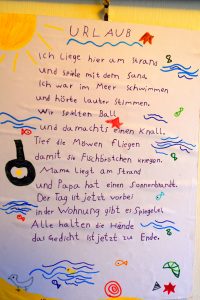 URLAUB
Ich Liege hier am Strand
und spiele mit dem Sand.
Ich war im Meer schwimmen
und hörte lauter Stimmen.
Wir spielten Ball
und da machts einen Knall.
Tief die Möwen fliegen
damit sie Fischbrötchen kriegen.
Mama liegt am Strand
und Papa hat einen Sonnenbrandt.
Der Tag ist jetzt vorbei
in der Wohnung gibt es Spiegelei.
Alle halten die Hände
das Gedicht ist jetzt zu Ende.